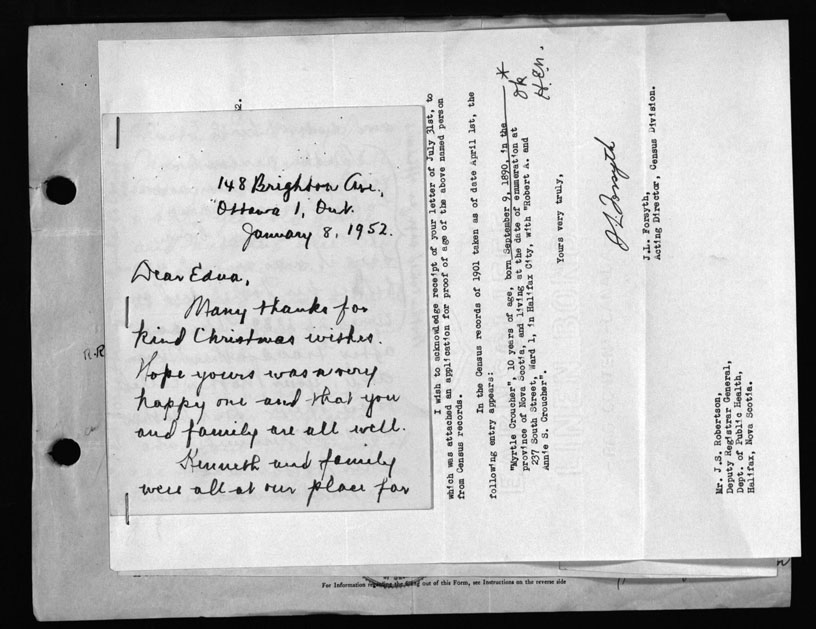 148 Brighton Ave.,
Ottawa 1, Ont.
January 8, 1952.
Dear Edna,
Many thanks for
kind Christmas wishes.
Hope yours was a very
happy one and that you
and family are all well.
Kenneth and family
were all at our place for
R.R
2.
I wish to acknowledge receipt of your letter of July 31st, to
which was attached an application for proof of age of the above named person
from Census records.
In the Census records of 1901 taken as of date April 1st, the
following entry appears:
"Myrtle Croucher", 10 years of age, born September 9, 1890, in the
province of Nova Scotia, and living at the date of enumeration at
237 South Street, Ward 1, in Halifax City, with "Robert A. and
Annie S. Croucher".
*
ok
H.E.N.
Yours very truly,
J L Forsyth
J.L. Forsyth,
Acting Director, Census Division.
Mr. J.S. Robertson,
Deputy Registrar General,
Dept. of Public Health,
Halifax, Nova Scotia.
For Information regarding the filling out of this Form, see Instructions on the reverse side